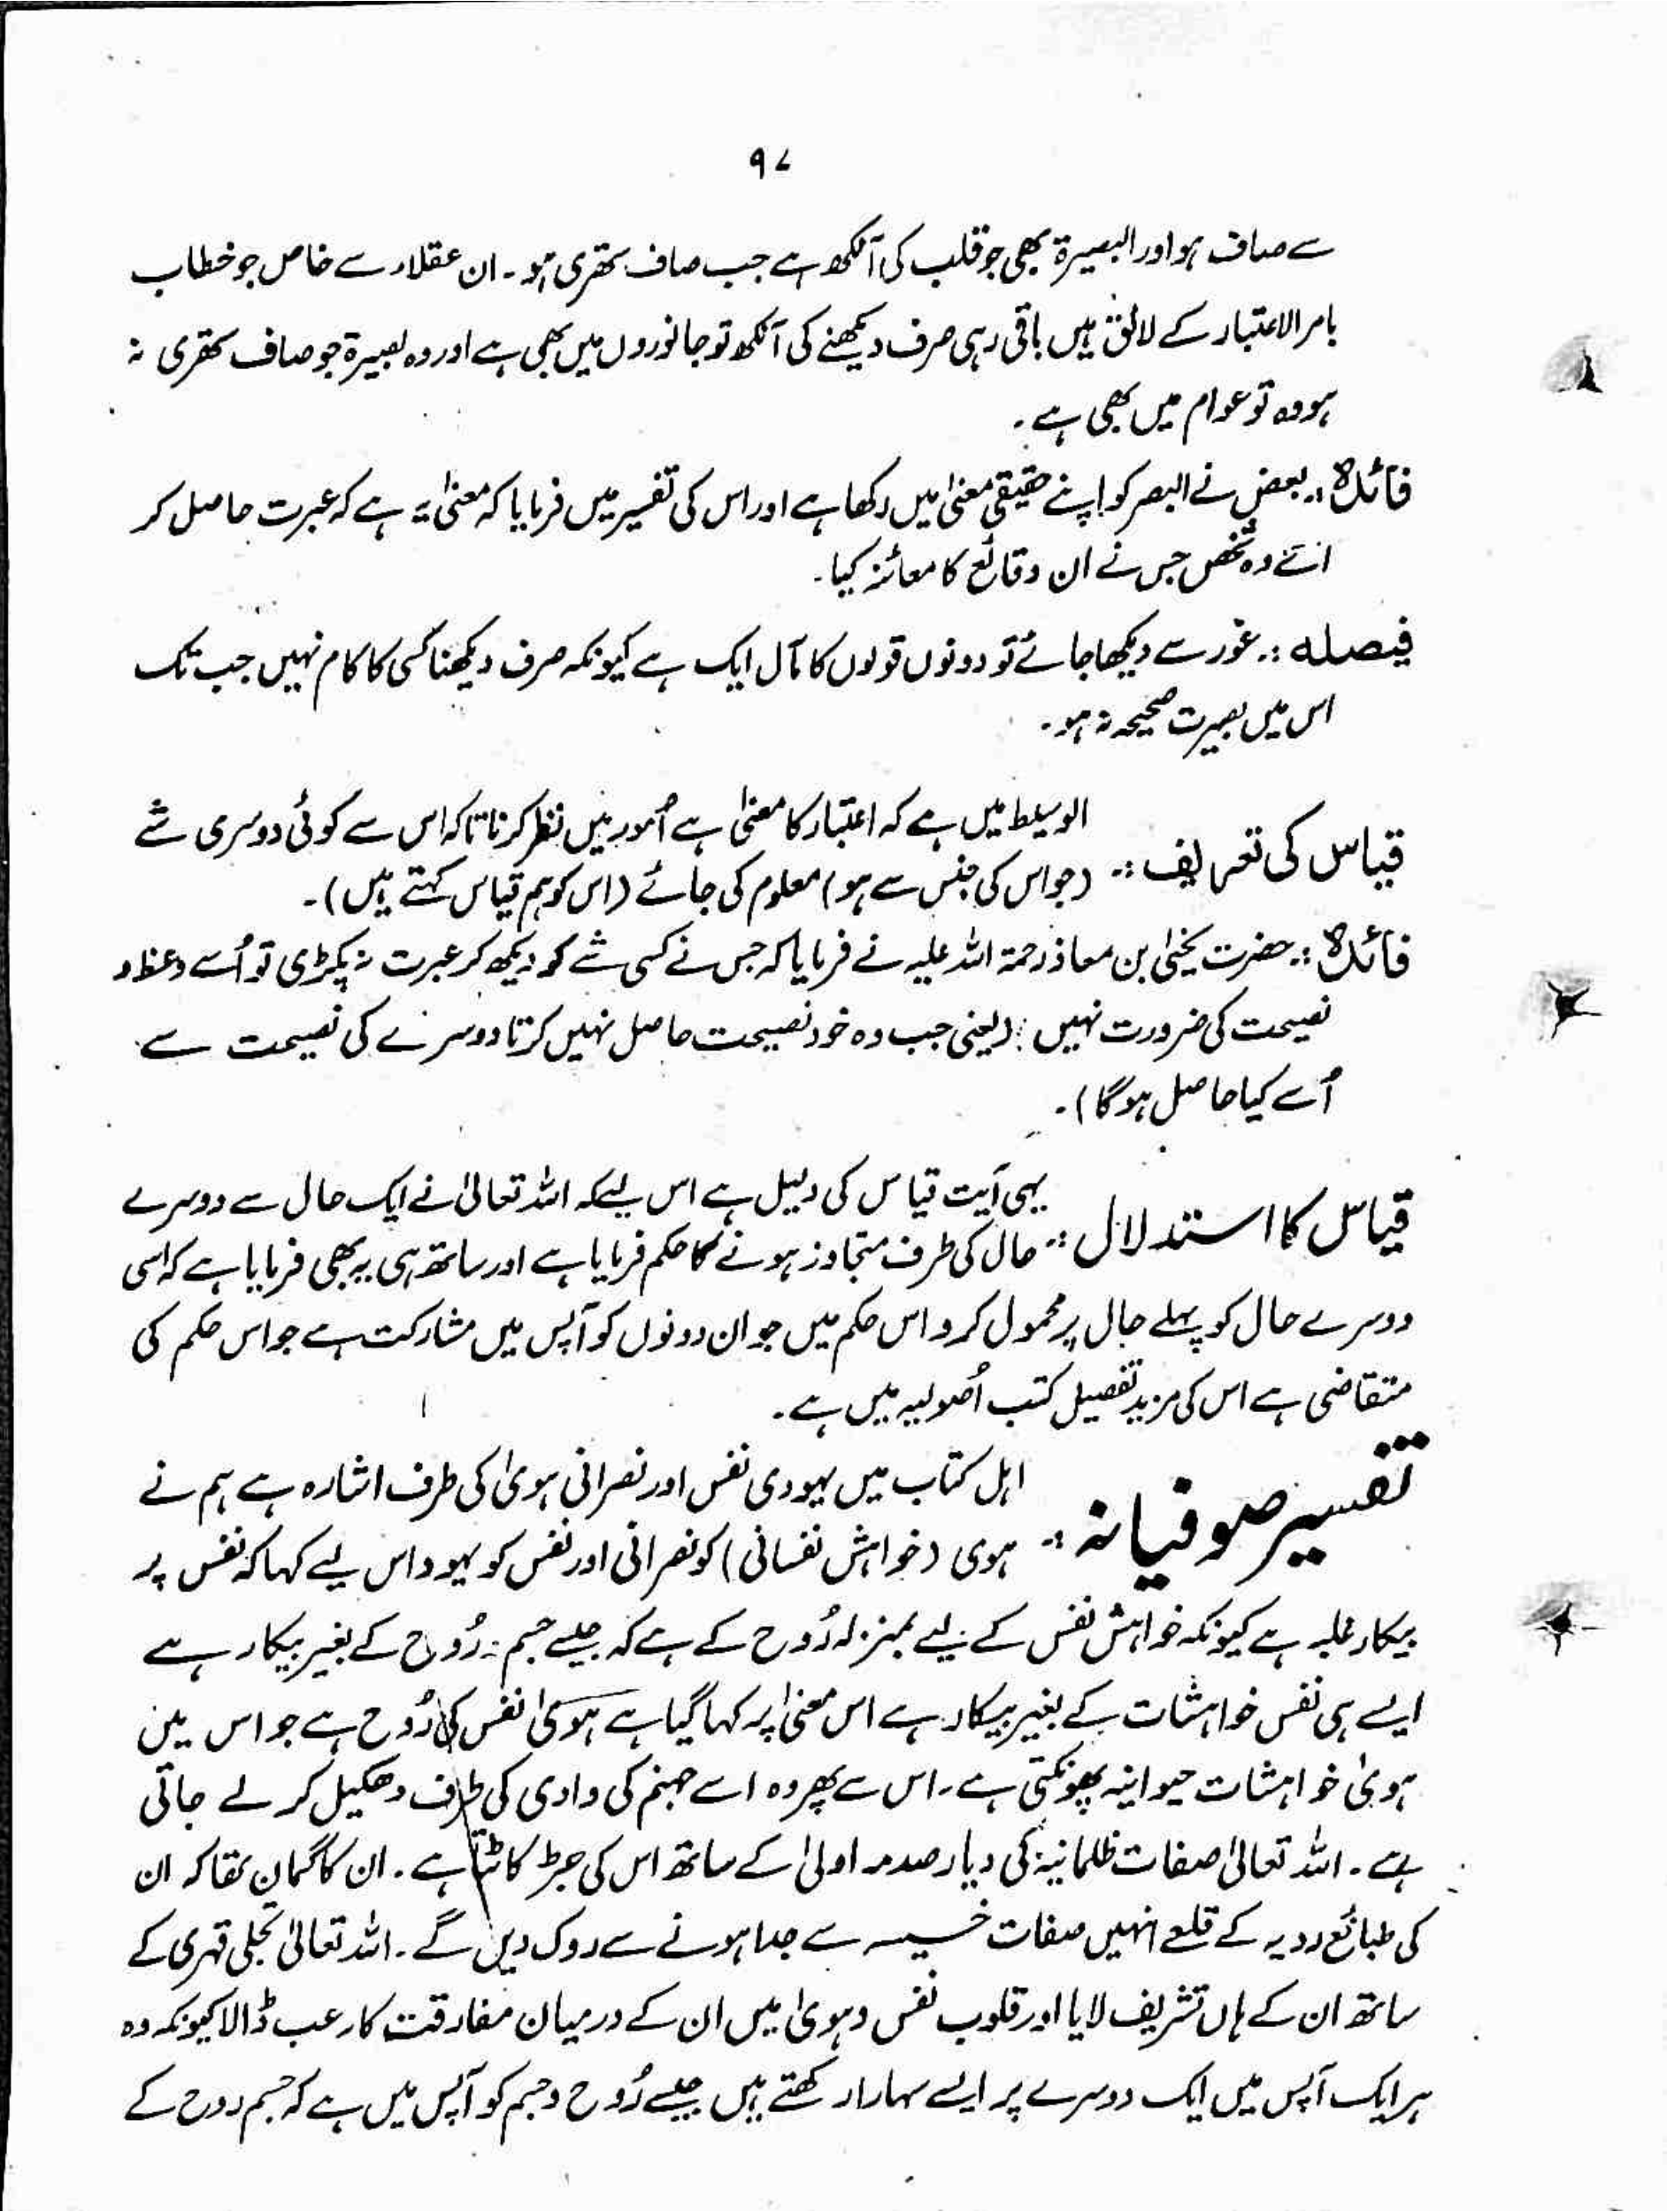 ۹۷
سے صاف ہو اور البصیرۃ بھی جو قلب کی آنکھ ہے جب صاف ستھری ہو۔ ان عقلاء سے خاص جو خطاب
بامر الاعتبار کے لائق ہیں باقی رہی صرف دیکھنے کی آنکھ تو جانوروں میں بھی ہے اور وہ بصیرۃ جو صاف ستھری نہ
ہو وہ تو عوام میں بھی ہے۔
فائدہ :۔ بعض نے البصر کو اپنے حقیقی معنیٰ میں رکھا ہے اور اس کی تفسیر میں فرمایا کہ معنیٰ یہ ہے کہ عبرت حاصل کر
اے وہ شخص جس نے ان وقائع کا معائنہ کیا۔
فیصلہ :۔ غور سے دیکھا جائے تو دونوں قولوں کا مآل ایک ہے کیونکہ صرف دیکھنا کسی کا کام نہیں جب تک
اس میں بصیرت صحیحہ نہ ہو۔
قیاس کی تعریف :۔ الوسیط میں ہے کہ اعتبار کا معنیٰ ہے اُمور میں نظر کرنا تاکہ اس سے کوئی دوسری شے
(جو اس کی جنس سے ہو) معلوم کی جائے (اس کو ہم قیاس کہتے ہیں)۔
فائدہ :۔ حضرت یحیٰی بن معاذ رحمۃ اللہ علیہ نے فرمایا کہ جس نے کسی شے کو دیکھ کر عبرت نہ پکڑی تو اُسے وعظ و
نصیحت کی ضرورت نہیں (یعنی جب وہ خود نصیحت حاصل نہیں کرتا دوسرے کی نصیحت سے
اُسے کیا حاصل ہوگا)۔
قیاس کا استدلال :۔ یہی آیت قیاس کی دلیل ہے اس لیے کہ اللہ تعالیٰ نے ایک حال سے دوسرے
حال کی طرف متجاوز ہونے کا حکم فرمایا ہے اور ساتھ ہی یہ بھی فرمایا ہے کہ اسی
دوسرے حال کو پہلے حال پر محمول کرو اس حکم میں جو ان دونوں کو آپس میں مشارکت ہے جو اس حکم کی
متقاضی ہے اس کی مزید تفصیل کتب اُصولیہ میں ہے۔
تفسیر صوفیانہ :۔ اہل کتاب میں یہودی نفس اور نصرانی ہویٰ کی طرف اشارہ ہے ہم نے
ہوی (خواہش نفسانی) کو نصرانی اور نفس کو یہود اس لیے کہا کہ نفس پر
بیکار غلبہ ہے کیونکہ خواہش نفس کے لیے بمنزلہ رُوح کے ہے کہ جیسے جسم رُوح کے بغیر بیکار ہے
ایسے ہی نفس خواہشات کے بغیر بیکار ہے اس معنیٰ پر کہا گیا ہے ہویٰ نفس کی رُوح ہے جو اس میں
ہویٰ خواہشات حیوانیہ پھونکتی ہے۔ اس سے پھر وہ اسے جہنم کی وادی کی طرف دھکیل کر لے جاتی
ہے۔ اللہ تعالیٰ صفات ظلمانیہ کی دیار صدمہ اولیٰ کے ساتھ اس کی جڑ کاٹتا ہے۔ ان کا گمان تھا کہ ان
کی طبائع ردیہ کے قلعے انہیں صفات خسیسہ سے جدا ہونے سے روک دیں گے۔ اللہ تعالیٰ تجلی قہری کے
ساتھ ان کے ہاں تشریف لایا اور قلوب نفس و ہویٰ میں ان کے درمیان مفارقت کا رعب ڈالا کیونکہ وہ
ہر ایک آپس میں ایک دوسرے پر ایسے سہارا رکھتے ہیں جیسے رُوح و جسم کو آپس میں ہے کہ جسم روح کے